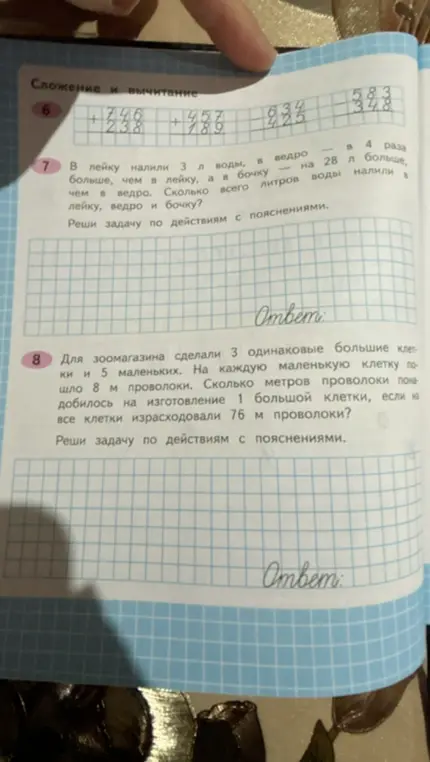 Сложение и вычитание
6 + 746 + 457 − 634 − 583
238 189 425 348
7 В лейку налили 3 л воды, в ведро — в 4 раза
больше, чем в лейку, а в бочку — на 28 л больше,
чем в ведро. Сколько всего литров воды налили в
лейку, ведро и бочку?
Реши задачу по действиям с пояснениями.
Ответ:
8 Для зоомагазина сделали 3 одинаковые большие клет-
ки и 5 маленьких. На каждую маленькую клетку по-
шло 8 м проволоки. Сколько метров проволоки пона-
добилось на изготовление 1 большой клетки, если на
все клетки израсходовали 76 м проволоки?
Реши задачу по действиям с пояснениями.
Ответ: